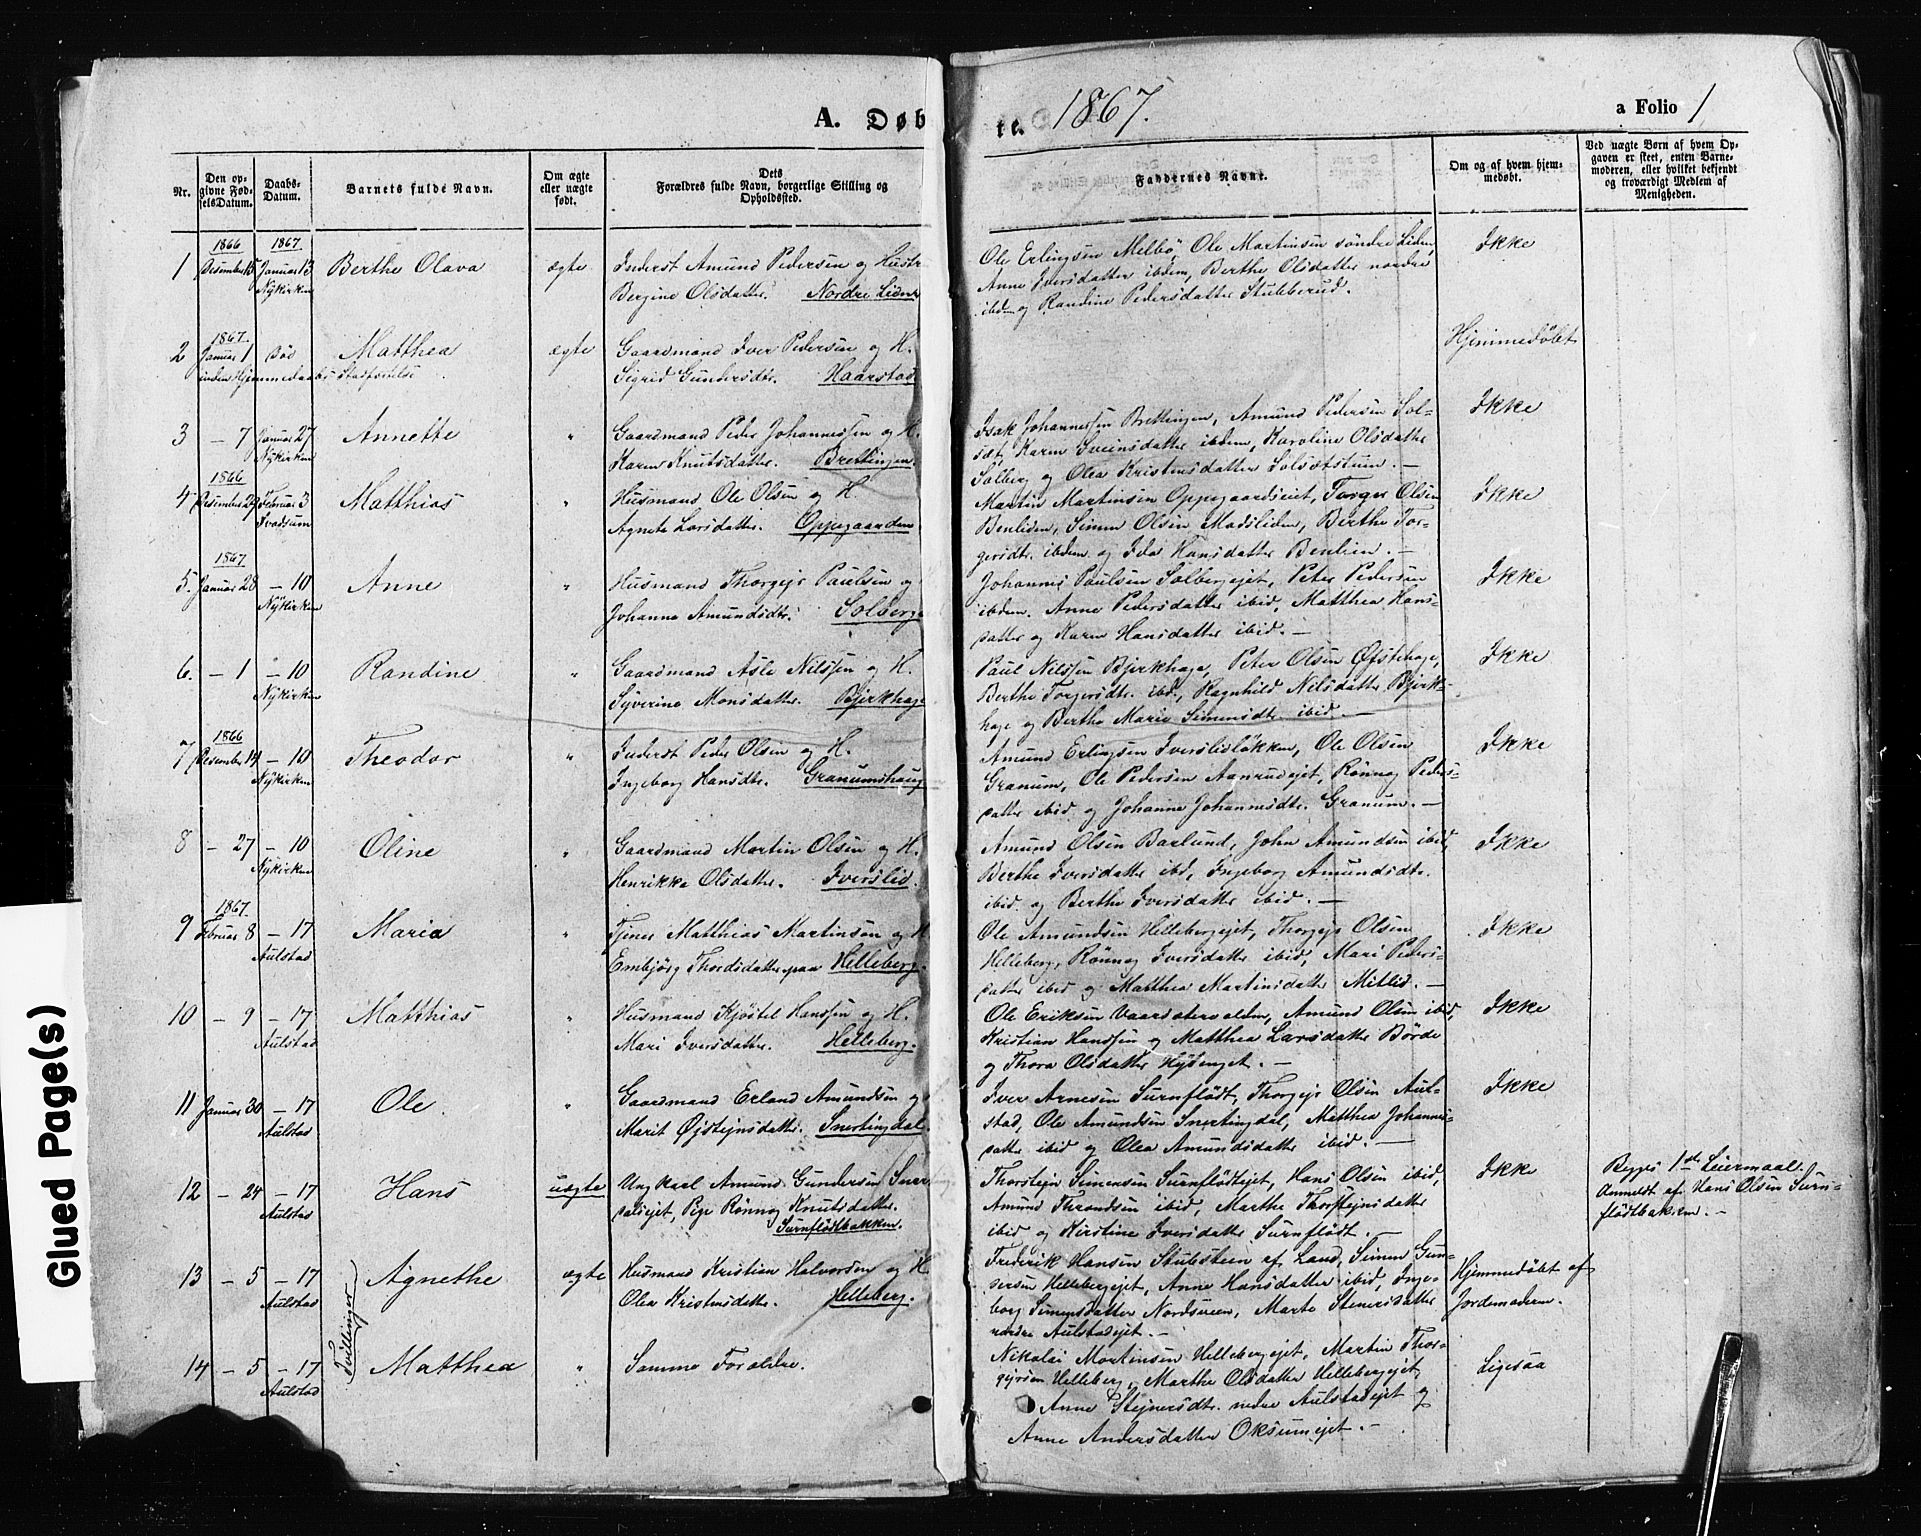 A. Døb
te. 1867.
a Folio 1
Nr.
Den op-
givne Fød-
selsDatum.
Daabs-
Datum.
Barnets fulde Navn.
Om ægte
eller uægte
født.
Dets
Forældres fulde Navn, borgerlige Stilling og
Opholdssted.
Faddernes Navne.
Om og af hvem hjem-
medøbt.
Ved uægte Børn af hvem Op-
gaven er skeet, enten Barne-
moderen, eller hvilket bekjendt
og troværdigt Medlem af
Menigheden.
1866 1867
1 Desember 15 Januar 13 Berthe Olava ægte Inderst Amund Pedersen og Hustr
Nÿkirken Bergine Olsdatter. Nordre Liden
Ole Erlingsen Melbö, Ole Martinsen söndre Liden,
Anne Iversdatter ibdem, Berthe Olsdatter nordre
ibdem og Randine Pedersdatter Stubberud.
Ikke
1867.
2 Januar 1 Död Matthea ægte Gaardmand Iver Pedersen og H.
inden Hjemmedaabs Stadfæstelse Sigrid Gundersdtr. Haarstad
Hjemmedöbt
3 - 7 Januar 27 Annette " Gaardmand Peder Johannessen og H.
Nÿkirken Karen Knutsdatter. Brettingen
Isak Johannessen Brettingen, Amund Pedersen Sol-
sæt, Karen Sveinsdatter ibdem, Karoline Olsdatter
Solberg og Olea Kristensdatter Solsætstuen. -
Ikke
1866
4 Desember 29 Februar 3 Matthias " Husmand Ole Olsen og H.
Svadsum Agnete Larsdatter. Oppegaarden
Martin Martinsen Oppegaardseiet, Torger Olsen
Benliden, Simen Olsen Madsliden, Berthe Tor-
gersdtr. ibdem og Ida Hansdatter Benlien. -
Ikke
1867
5. Januar 28 - 10 Anne " Husmand Thorgejr Paulsen og
Nÿkirken Johanne Amundsdtr. Solberg
Johannes Paulsen Solbergejet, Peter Pedersen
ibdem, Anne Pedersdatter ibid, Matthea Hans-
datter og Karen Hansdatter ibid. -
Ikke
6. - 1 - 10 Randine " Gaardmand Asle Nilssen og H.
Nÿkirken Syverine Monsdatter. Bjerkhage
Paul Nilssen Bjerkhage, Peter Olsen Øfstehage,
Berthe Torgersdtr. ibd, Ragnhild Nilsdatter Bjerk-
hage og Berthe Marie Simensdtr ibid. -
Ikke
1866
7 Desember 14 - 10 Theodor " Inderst Peder Olsen og H.
Nÿkirken Ingeborg Hansdtr. Granumshaug
Amund Erlingsen Iverslislökken, Ole Olsen
Granum, Ole Pedersen Aanrudejet, Rönnog Peders-
datter ibid og Johanne Johannesdtr. Granum. -
Ikke
8 - 27 - 10 Oline " Gaardmand Martin Olsen og H.
Nÿkirken Henrikka Olsdatter. Iverslid.
Amund Olsen Barlund, John Amundsen ibid,
Berthe Iversdatter ibd, Ingeborg Amundsdtr.
ibid. og Berthe Iversdatter ibid. -
Ikke
1867.
9 Februar 8 - 17 Maria " Tjener Matthias Martinsen og H.
Aulstad Embjörg Thordsdatter paa Helleberg.
Ole Amundsen Hellebergejet, Thorgejr Olsen
Helleberg, Rönnog Iversdatter ibid, Mari Peders-
datter ibid og Matthea Martinsdatter Mitlid. -
Ikke
10 - 9 - 17 Matthias " Husmand Kjöstel Hanssen og H.
Aulstad Mari Iversdatter. Helleberg.
Ole Eriksen Vaardatervolden, Amund Olsen ibid,
Kristian Hanssen og Matthea Larsdatter Börde
og Thora Olsdatter Hybenget. -
Ikke
11 Januar 30 - 17 Ole. " Gaardmand Erland Amundsen og
Aulstad Marit Øjstejnsdatter. Snertingdal.
Iver Arnesen Surnflödt, Thorgejr Olsen Aul-
stad, Ole Amundsen Snertingdal, Matthea Johannes-
datter ibid og Olea Amundsdatter ibid. -
Ikke
12 - 24 - 17 Hans uægte Ungkarl Amund Gundersen
Aulstad Pige Rönnog Knutsdatter.
Surnflödbakken.
Thorstejn Simensen Surnflödtejet, Hans Olsen ibid,
Amund Throndsen ibid, Marthe Thorstejnsdatter
ibid og Kirstine Iversdatter Surnflödt. -
Ikke
Begges 1ste Leiermaal.
Anmeldt af Hans Olsen Surn-
flödbakken. -
13 - 5 - 17 Agnethe ægte Husmand Kristian Halvorsen og H.
Aulstad Olea Kristensdatter. Helleberg.
Frederik Hansen Stubsteen af Land, Simen Gun-
dersen Hellebergejet, Anne Hansdatter ibid, Inge-
borg Simensdatter Nordsveen, Marte Stenersdatter
nedre Aulstadejet. -
Hjemmedöbt af
Jordemoderen.
Tvillinger
14 - 5 - 17 Matthea " Samme Forældre.
Aulstad
Nikolai Mortinsen Hellebergejet, Martin Thor-
gersen Helleberg, Marthe Olsdatter Hellebergejet
Anne Stejnersdtr. nedre Aulstadejet og
Anne Andersdatter Oksumejet. -
Ligesaa
Glued Page(s)